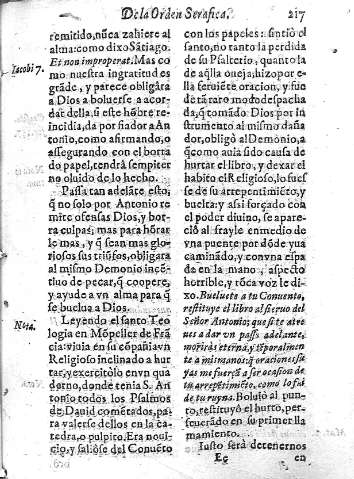 De la Orden Serafica.
217
remitido, nũca zahiere al
alma: como dixo Sãtiago.
Et non improperat. Mas co
Iacobi 7.
mo nuestra ingratitud es
grãde, y parece obligàra
à Dios a boluerse a acor-
dar della, si este hõbre re-
incidia, da por fiador a An
tonio, como afirmando, ò
assegurando con el borta
do papel, tendrá sempiter
no oluido de lo hecho.
Passa tan adelãte esto,
q̃ no solo por Antonio re
mite ofensas Dios, y bor-
ra culpas; mas para hõrar
le mas, y q̃ sean mas glo-
riosos sus triũfos, obligara
al mismo Demonio incẽ-
tiuo de pecar, q̃ coopere,
y ayude a vn alma para q̃
se buelua a Dios.
Nota.
Leyendo el santo Teo
logia en Mõpeller de Frã
cia: viuia en su cõpañia vn
Religioso inclinado a hur
tar, y exercitólo en vn qua
derno, donde tenia S. An
tonio todos los Psalmos
de Dauid comẽtados, pa-
ra valerse dellos en la ca-
tedra, o pulpito. Era noui-
cio, y saliòse del Conuẽto
con los papeles: sintió el
santo, no tanto la perdida
de su Psalterio, quanto la
de aq̃lla oueja, hizo por e-
lla feruiẽte oracion, y fue
de tã raro modo despacha
da, q̃ tomãdo Dios por in
strumento al mismo daña
dor, obligò al Demonio, a
q̃ como auia sido causa de
hurtar el libro, y dexar el
habito el Religioso, lo fues
se de su arrepentimiẽto, y
buelta: y assi forçado con
el poder diuino, se apare-
ciò al frayle en medio de
vna puente por dõde yua
caminãdo, y con vna espa
da en la mano, aspecto
horrible, y ròca voz le di-
xo. Bueluete a tu Conuento,
restituye el libro al sieruo del
Señor Antonio; que si te atre
ues a dar vn passo adelante,
morirás eterna, y tẽporalmen
te a mis manos: q̃ oraciones su
yas me fuerçã a ser ocasion de
tu arrepẽtimiẽto, como lo fui
de tu ruyna. Boluiò al pun-
to, restituyò el hurto, per-
seuerãdo en su primer lla
mamiento.
Iusto serà detenernos
Ee
en